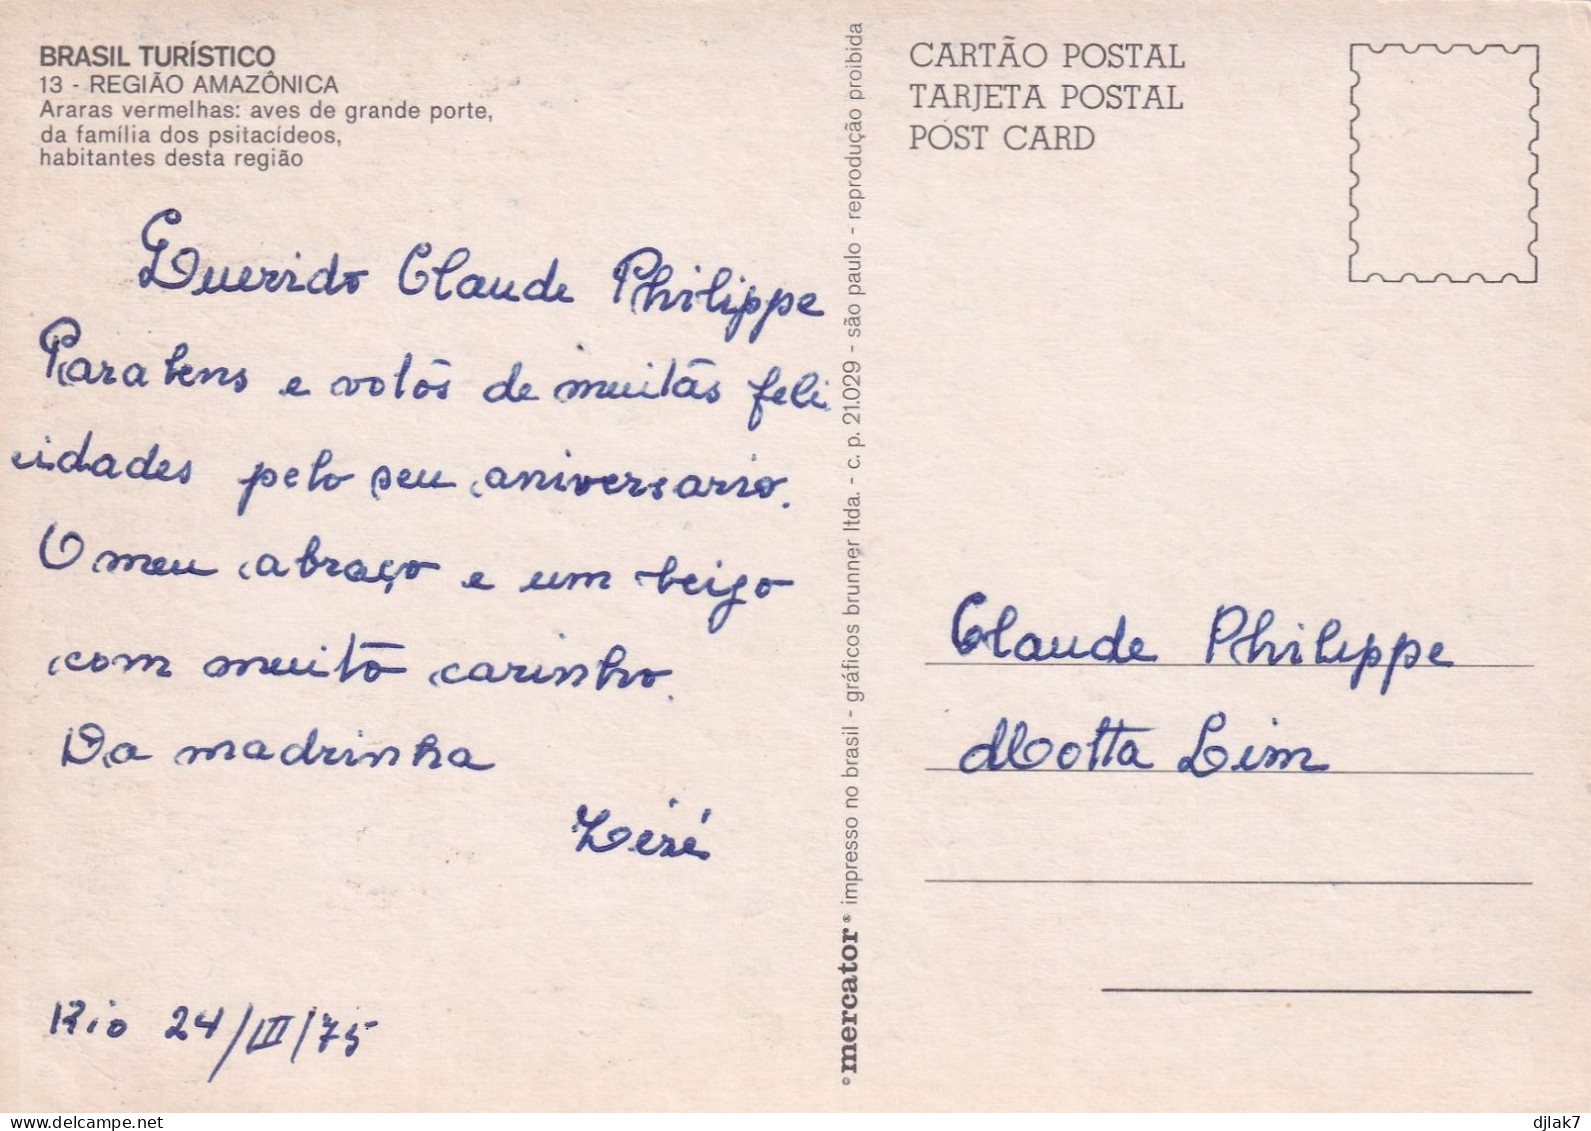 BRASIL TURÍSTICO
13 - REGIÃO AMAZÔNICA
Araras vermelhas: aves de grande porte,
da família dos psitacídeos,
habitantes desta região
Querido Claude Philippe
Parabens e votos de muitas feli
cidades pelo seu aniversario.
O meu abraço e um beijo
com muito carinho.
Da madrinha
Zezé
Rio 24/III/75
mercator® impresso no brasil - gráficos brunner ltda. - c. p. 21.029 - são paulo - reprodução proibida
CARTÃO POSTAL
TARJETA POSTAL
POST CARD
Claude Philippe
Motta Lim
delcampe.net
djlak7